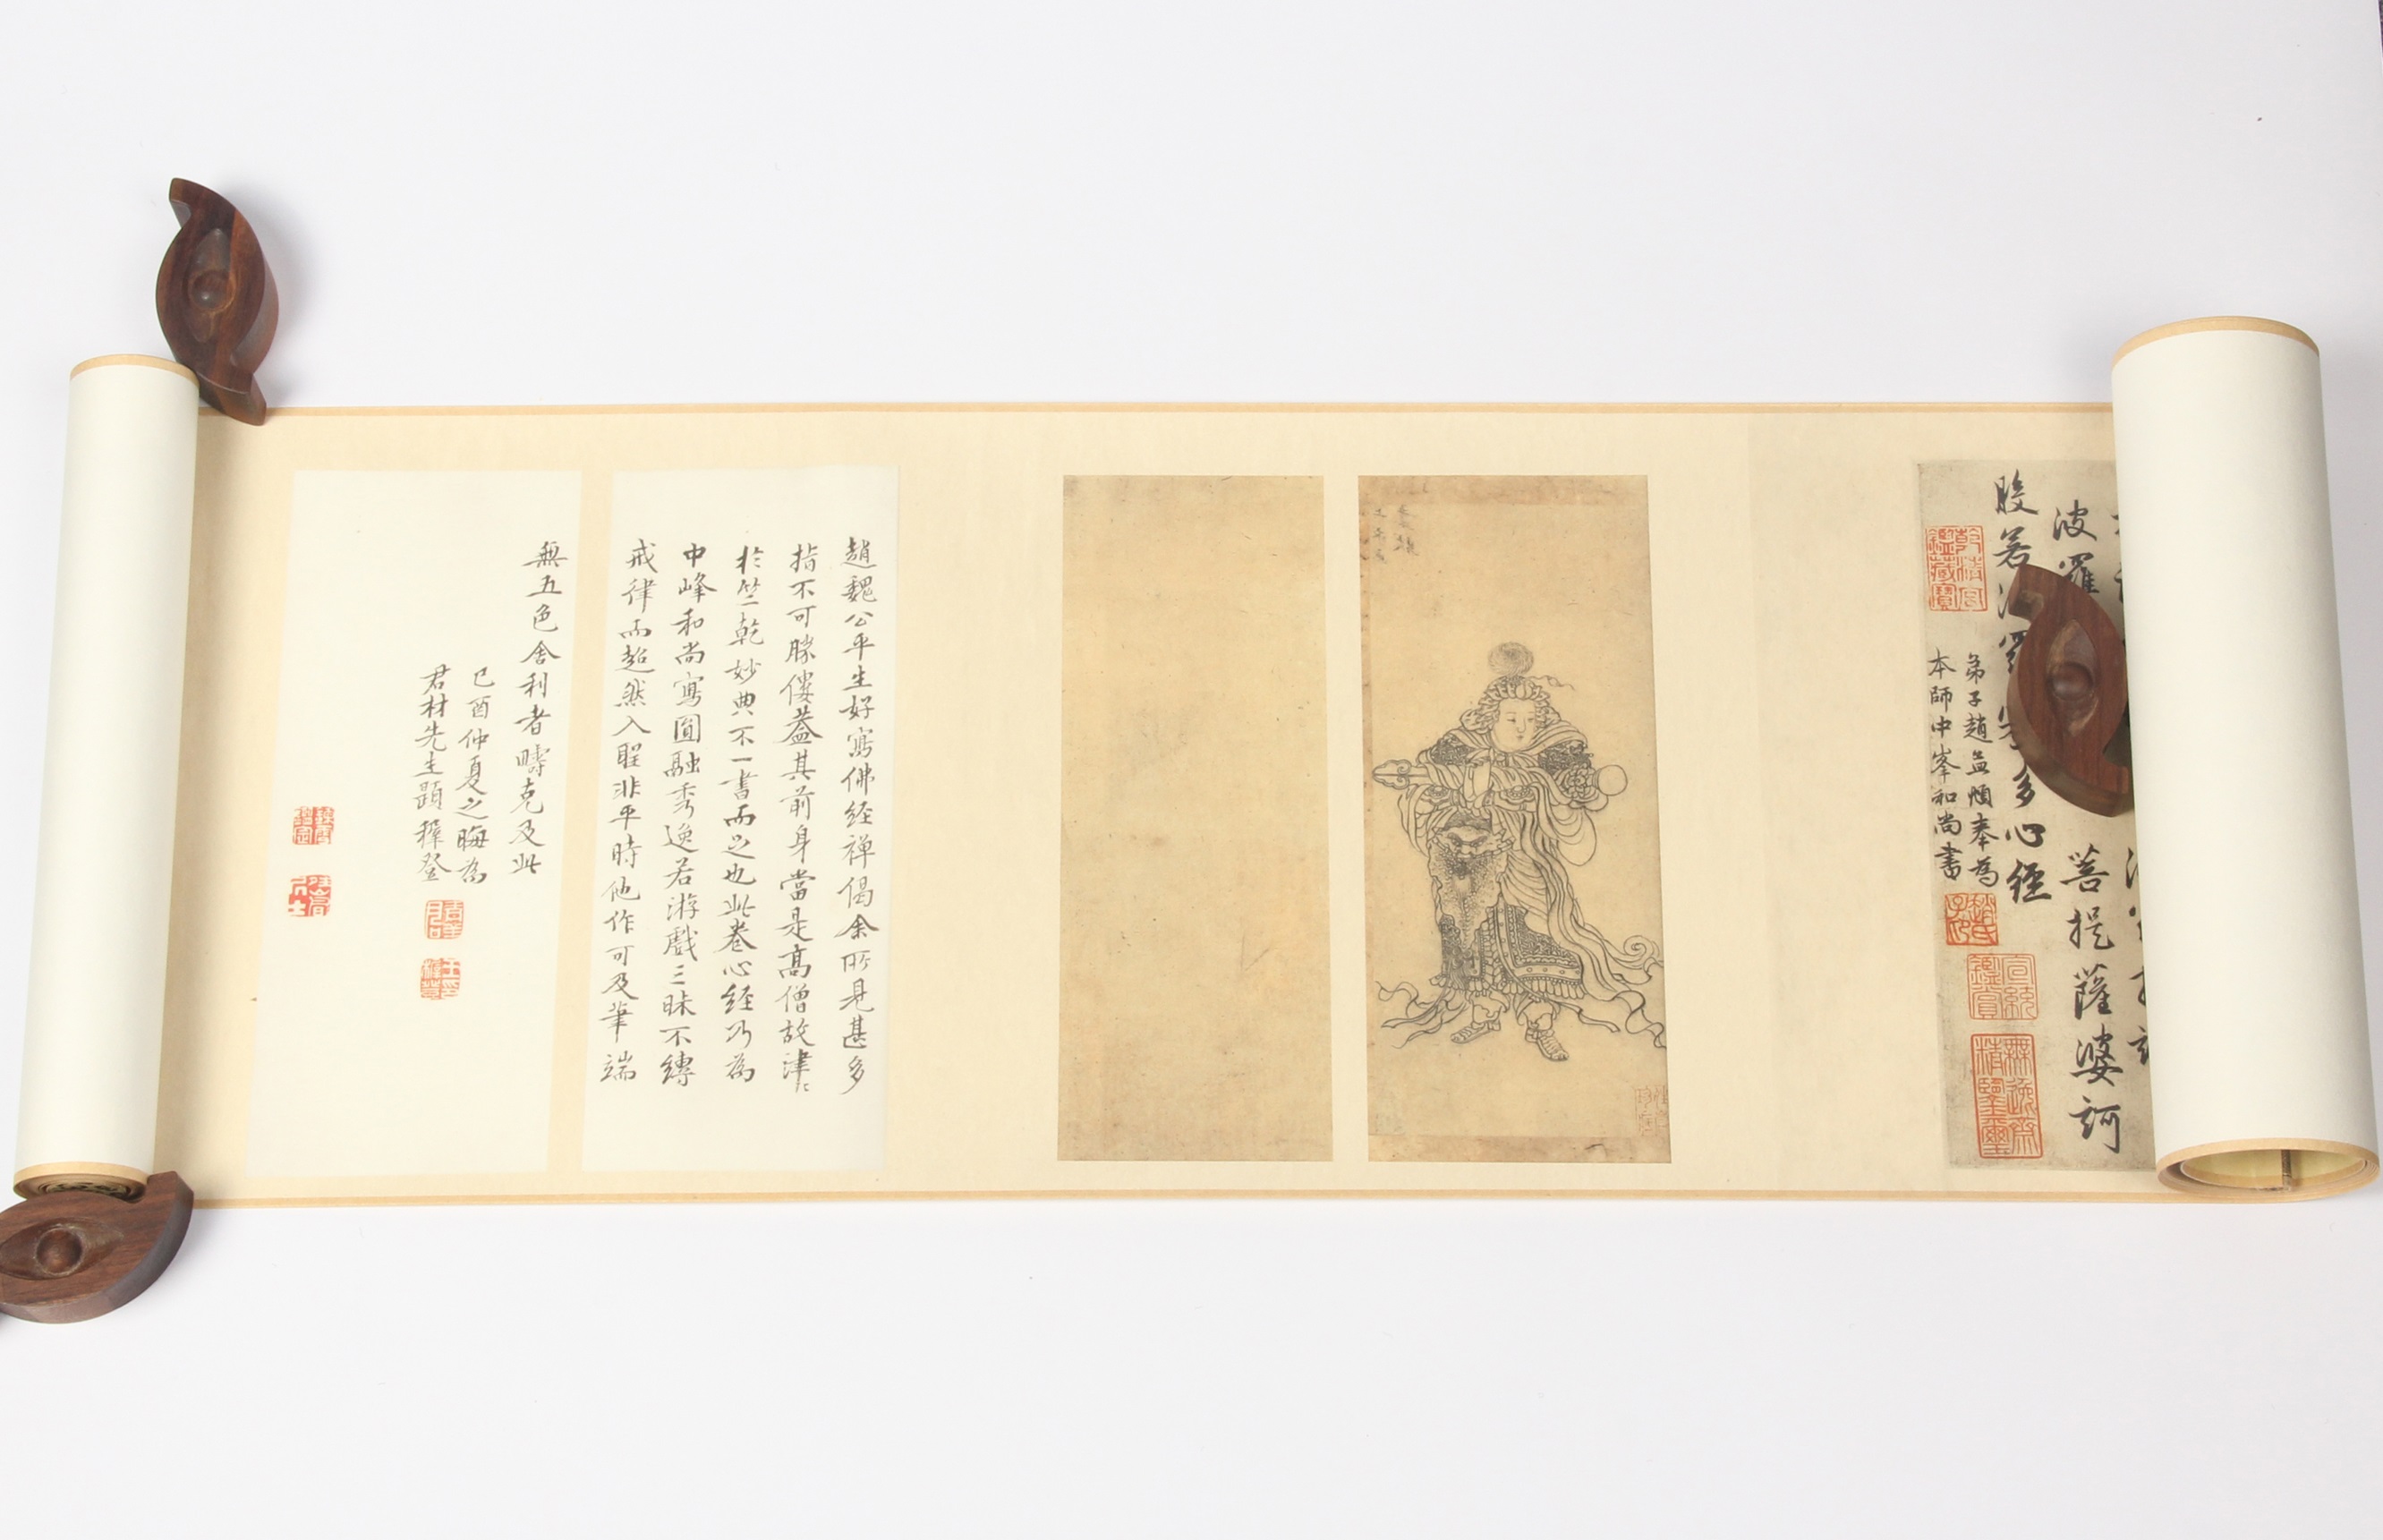 菩提薩婆訶
般若
多心經
弟子趙孟頫奉為
本師中峯和尚書
乾清宮鑑藏寶
趙氏子昂
宣統鑑賞
無逸齋精鑒璽
趙魏公平生好寫佛經禪偈余所見甚多
指不可勝僂蓋其前身當是高僧故津〻
於竺乾妙典不一書而足也此卷心經乃為
中峰和尚寫圓融秀逸若游戲三昧不縛
戒律而超然入聖非平時他作可及筆端
無五色舍利者疇克及此
己酉仲夏之晦為
君材先生題穉登